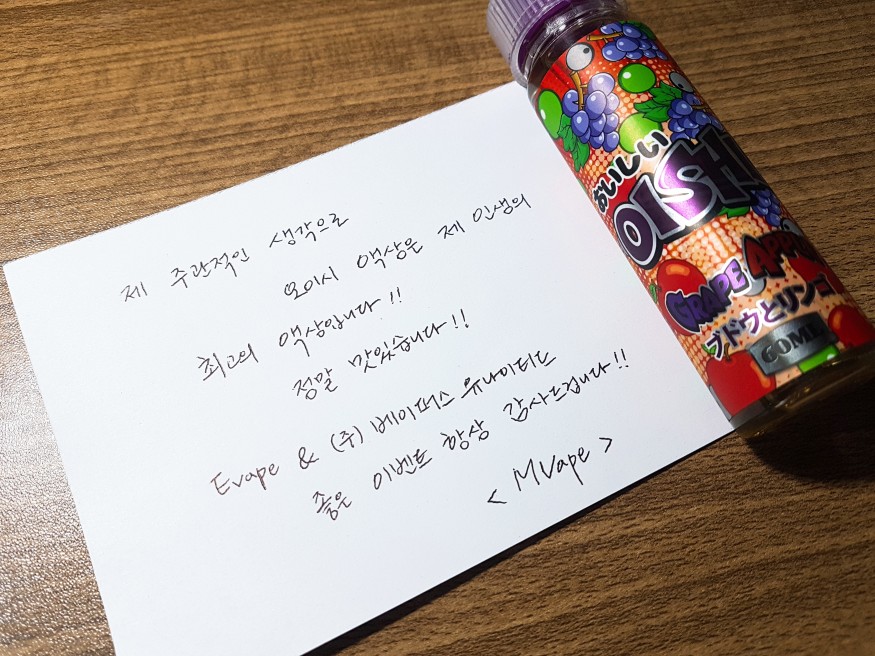 제 주관적인 생각으로
오이시 액상은 제 인생의
최고의 액상입니다!!
정말 맛있습니다!!
Evape & (주) 베이퍼스 유나이티드
좋은 이벤트 항상 감사드립니다!!
< MVape >
おいしい
OISHI
GRAPE APPLE
ブドウとリンゴ
60ML